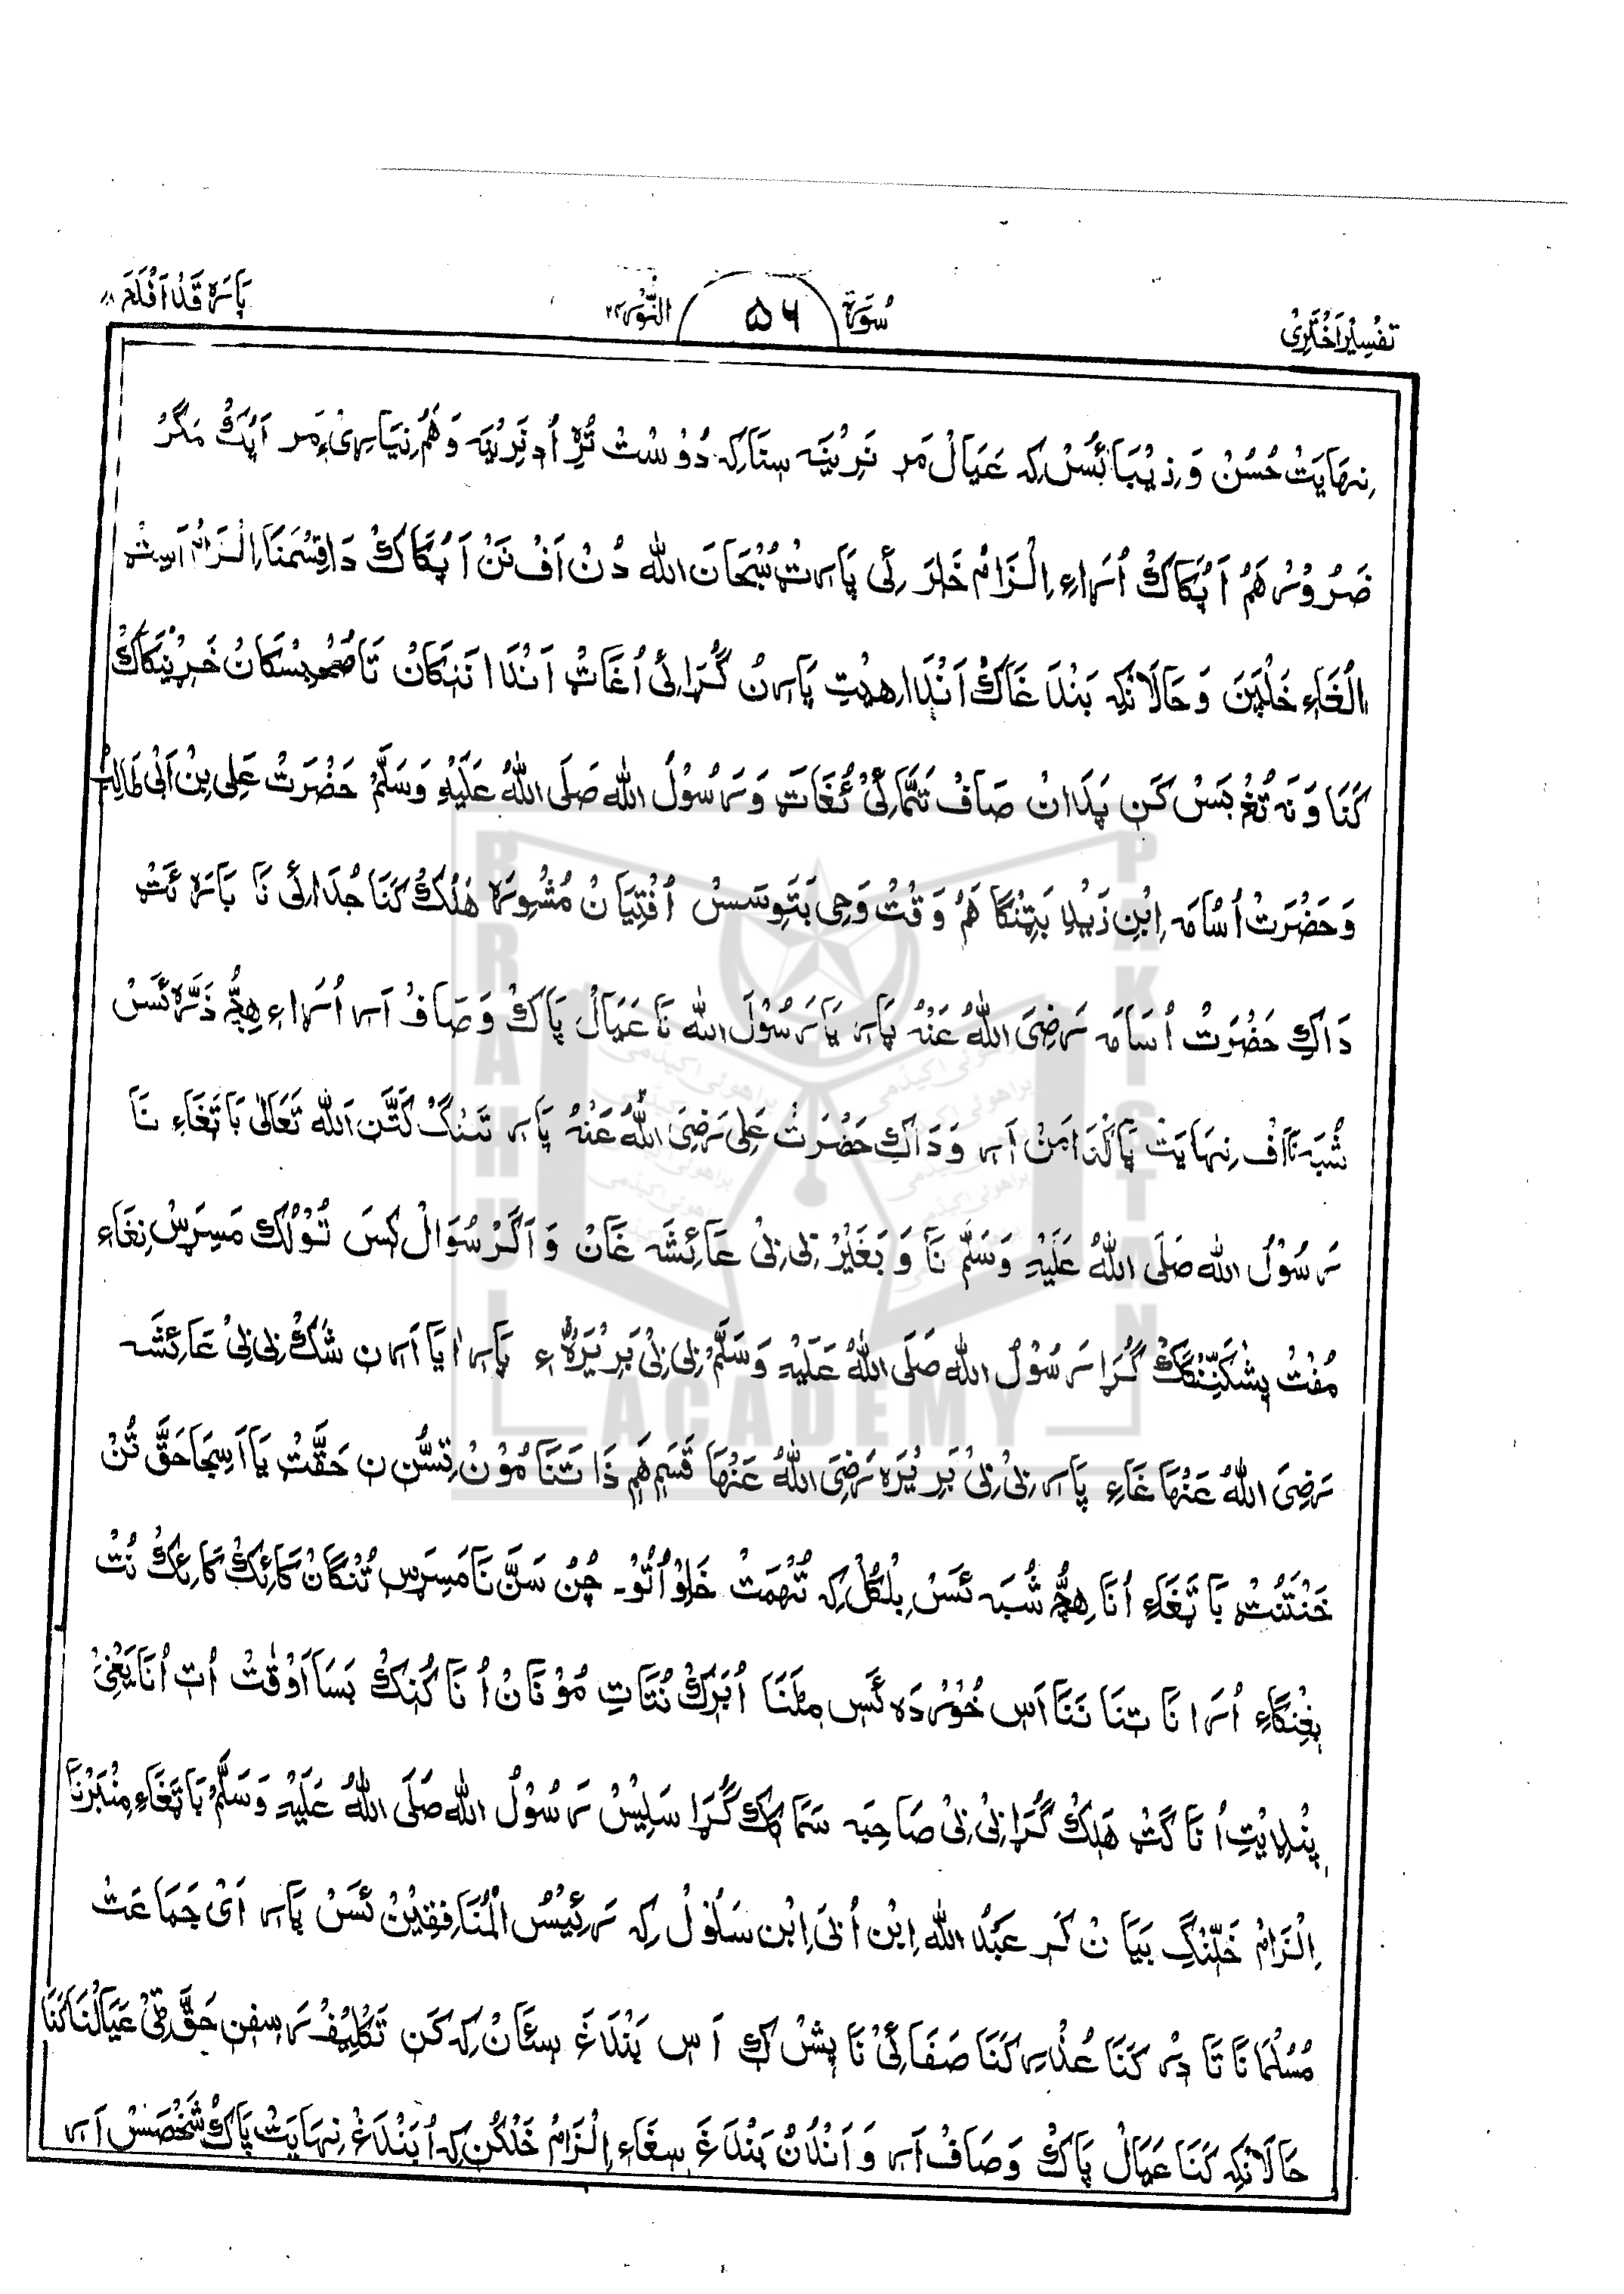 تفسیر اختری
سورۃ ۵۶ النور ۲۴
پارہ قد افلح ۱۸
نِہَایَتْ حُسُنْ وَ زِیْبَائَسْ کہ عَیَالْ مَر نَرِیْنَہ سِنَا کہ دُوْسْتْ تُرِہ اُد نَرِیْنَہ وَ ہُم نِیَارِیْ ءِ مَر اَپُکْ مَگَرْ
ضَرُوْر ہَمْ اَپُکَاکْ اُرَاءِ اِلْزَامْ خَلِرَ ئِی پَارِٹ سُبْحَانَ اللہ دُنْ اَفْ نَنْ اَپُکَاکْ دَا قِسْمَنَا اِلْزَامْ اَسِٹ
اِلْغَاءِ خَلْپَنَ وَ حَالَانْکِہ بَنْدَغَاکْ اَنْدَا ہِیت پَارِن گُڑَا ئِی اُغَاٹ اَنْدَا نَنْکَانْ تَا صُحْوِسْکَانْ خَرِیْنْکَاکْ
کَنَا وَ نَہ تُغْ بَسْ کَنِ پَدَانْ صَافْ تَمَّا ئِیْ ئُغَاٹ وَ رَسُوْلُ اللہ صَلَی اللہُ عَلَیْہِ وَسَلَّمْ حَضْرَتْ عَلِی بِنْ اَبِی طَالِبْ
وَ حَضْرَتْ اُسَامَہ اِبْنِ زَیْد بَتِنْگَا ہَمْ وَقْتْ وَحِی بَتَوِسَسْ اُفْتِیَانْ مُشْوِرَہ ہَلْکْ کَنَا جُدَائِی نَا بَارَہ ئَٹْ
دَاکِ حَضْرَتْ اُسَامَہ رَضِیَ اللہُ عَنْہُ پَارِ یَا رَسُوْلَ اللہ نَا عَیَالْ پَاکْ وَ صَافْ اَرِ اُرَاءِ ہِچُّ ذَرَّہ ئَسْ
شُبَہ نَا اَفْ نِہَایَتْ پَالَنَا اَمَنْ اَرِ وَ دَاکِ حَضْرَتْ عَلِی رَضِیَ اللہُ عَنْہُ پَارِ تَنْگْ کَتَّنِ اَللہ تَعَالٰی بَاتَغَاءِ نَا
رَسُوْلُ اللہ صَلَی اللہُ عَلَیْہِ وَسَلَّمْ نَا وَ بَغَیْرْ بِی بِیْ عَائِشَہ غَانْ وَ اَگَرْ سُوَالْ کِسَ تُوْلُکْ مَسِرَسْ نِغَاءِ
مُفْتْ پِشْکَنِّنْگَکْ گُڑَا رَسُوْلُ اللہ صَلَی اللہُ عَلَیْہِ وَسَلَّمْ بِی بِیْ بَرِیْرَہْ ءِ پَارِ اٰیَا اَرِ نِ شَکْ بِی بِیْ عَائِشَہ
رَضِیَ اللہُ عَنْہَا غَاءِ پَارِ بِیْ بِیْ بَرِیْرَہ رَضِیَ اللہُ عَنْہَا قَسَمِ ہَمِ ذَاتَنَا مُوْنْ تِسُّنِ نِ حَقَّتْ یَا اَسِجَا حَقَّ تُنْ
خَنْتَنُٹ بَاتَغَاءِ اُنَا ہِچُّ شُبَہ ئَسْ بِلْکُلْ کہ تُہْمَتْ خَلِوْ اُتَوْ۔ چُنُ سَنَّ نَا مَسِرَسِ تُنْگَانْ کَائِکْ کَائِکْ نُتْ
پِغِنْگَاءِ اُرَا نَا تِنَا نَنَا اَسِ خُوْرْدَہ ئَسِ مِلَنَا اُبَرِکْ نُتَاتِ مُوْنَانْ اُنَا کُنِکْ بَسَا اَوْقَٰتْ اُٹِ اُنَا یَعْنِیْ
پِنْدِیْتِ اُنَا گَٹْ ہَلِکْ گُڑَا بِیْ بِیْ صَاحِبَہ سَمَا کِکْ گُڑَا سَلِیْسْ رَسُوْلُ اللہ صَلَی اللہُ عَلَیْہِ وَسَلَّمْ بَاتَغَاءِ مِنْبَرْنَا
اِلْزَامْ خَلِّنْگِ بَیَانْ کَرِ عَبْدُ اللہ اِبْنِ اُبَیْ اِبْنِ سَلُوْلْ کِہ رَئِیْسُ الْمُنَافِقِیْنْ ئَسْ پَارِ اَیْ جَمَاعَتْ
مُسُلْمَانَا تَا دِرِ کَنَا عُذُرِ کَنَا صَفَائِیْ نَا پِشْ کِ اَسِ بَنْدَغَ سِئَانْ کِہ کَنِ تَکْلِیْفْ رَسِفِنِ حَقَّ ٹِیْ عَیَالْنَا کَنَا
حَالَانْکِہ کَنَا عَیَالْ پَاکْ وَ صَافْ اَرِ وَ اَنْدُنْ بَنْدَغَ سِغَاءِ اِلْزَامْ خَلْکُنِ کِہ اُ بَنْدَغْ نِہَایَتْ پَاکْ شَخْصَسْ اَرِ
BRAHUI
ACADEMY
PAKISTAN
براھوئی اکیڈمی